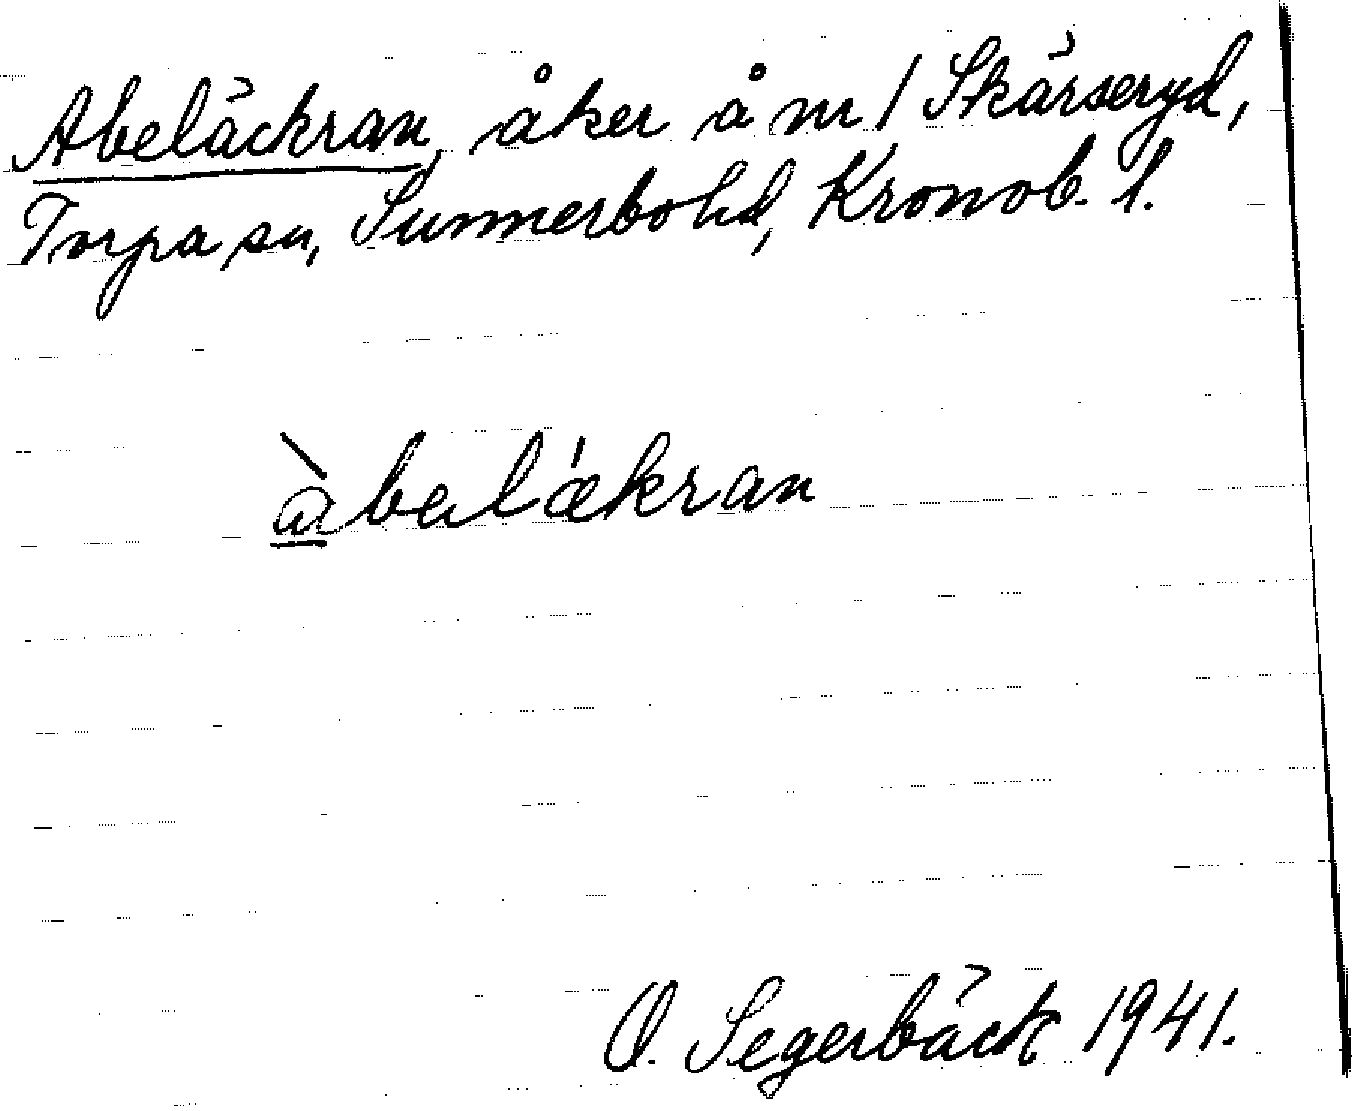 Abeläckran, åker å nr 1 Skärseryd,
Torpa sn, Sunnerbo hd, Kronob. l.
àbelǽkran
O. Segerbäck 1941.